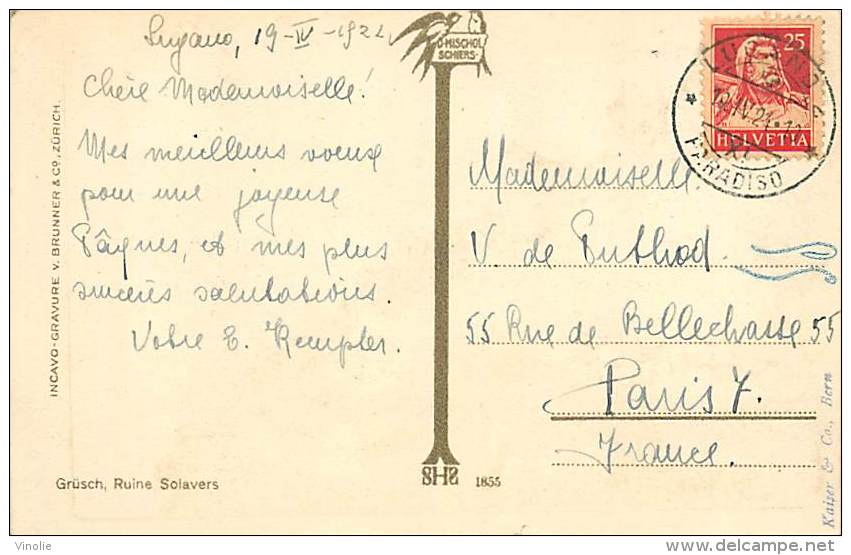 Lugano, 19-IV-1922
Chère Mademoiselle!
Mes meilleurs voeux
pour une joyeuse
Pâques, et mes plus
sincères salutations.
Votre E. Kempter.
INCAVO-GRAVURE V. BRUNNER & CO., ZÜRICH.
Grüsch, Ruine Solavers
D. MISCHOL
SCHIERS
SHS 1855
25
HELVETIA
PARADISO
Mademoiselle
V. de Puthod.
55 Rue de Bellechasse 55
Paris 7.
France.
Kaiser & Co., Bern
Vinolie
delcampe.net